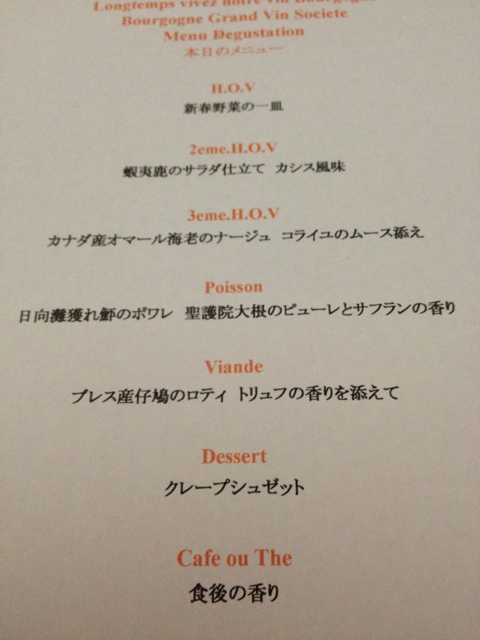 Longtemps vivez notre vin Bourgogne
Bourgogne Grand Vin Societe
Menu Degustation
本日のメニュー
H.O.V
新春野菜の一皿
2eme.H.O.V
蝦夷鹿のサラダ仕立て カシス風味
3eme.H.O.V
カナダ産オマール海老のナージュ コライユのムース添え
Poisson
日向灘獲れ鰤のポワレ 聖護院大根のピューレとサフランの香り
Viande
ブレス産仔鳩のロティ トリュフの香りを添えて
Dessert
クレープシュゼット
Cafe ou The
食後の香り